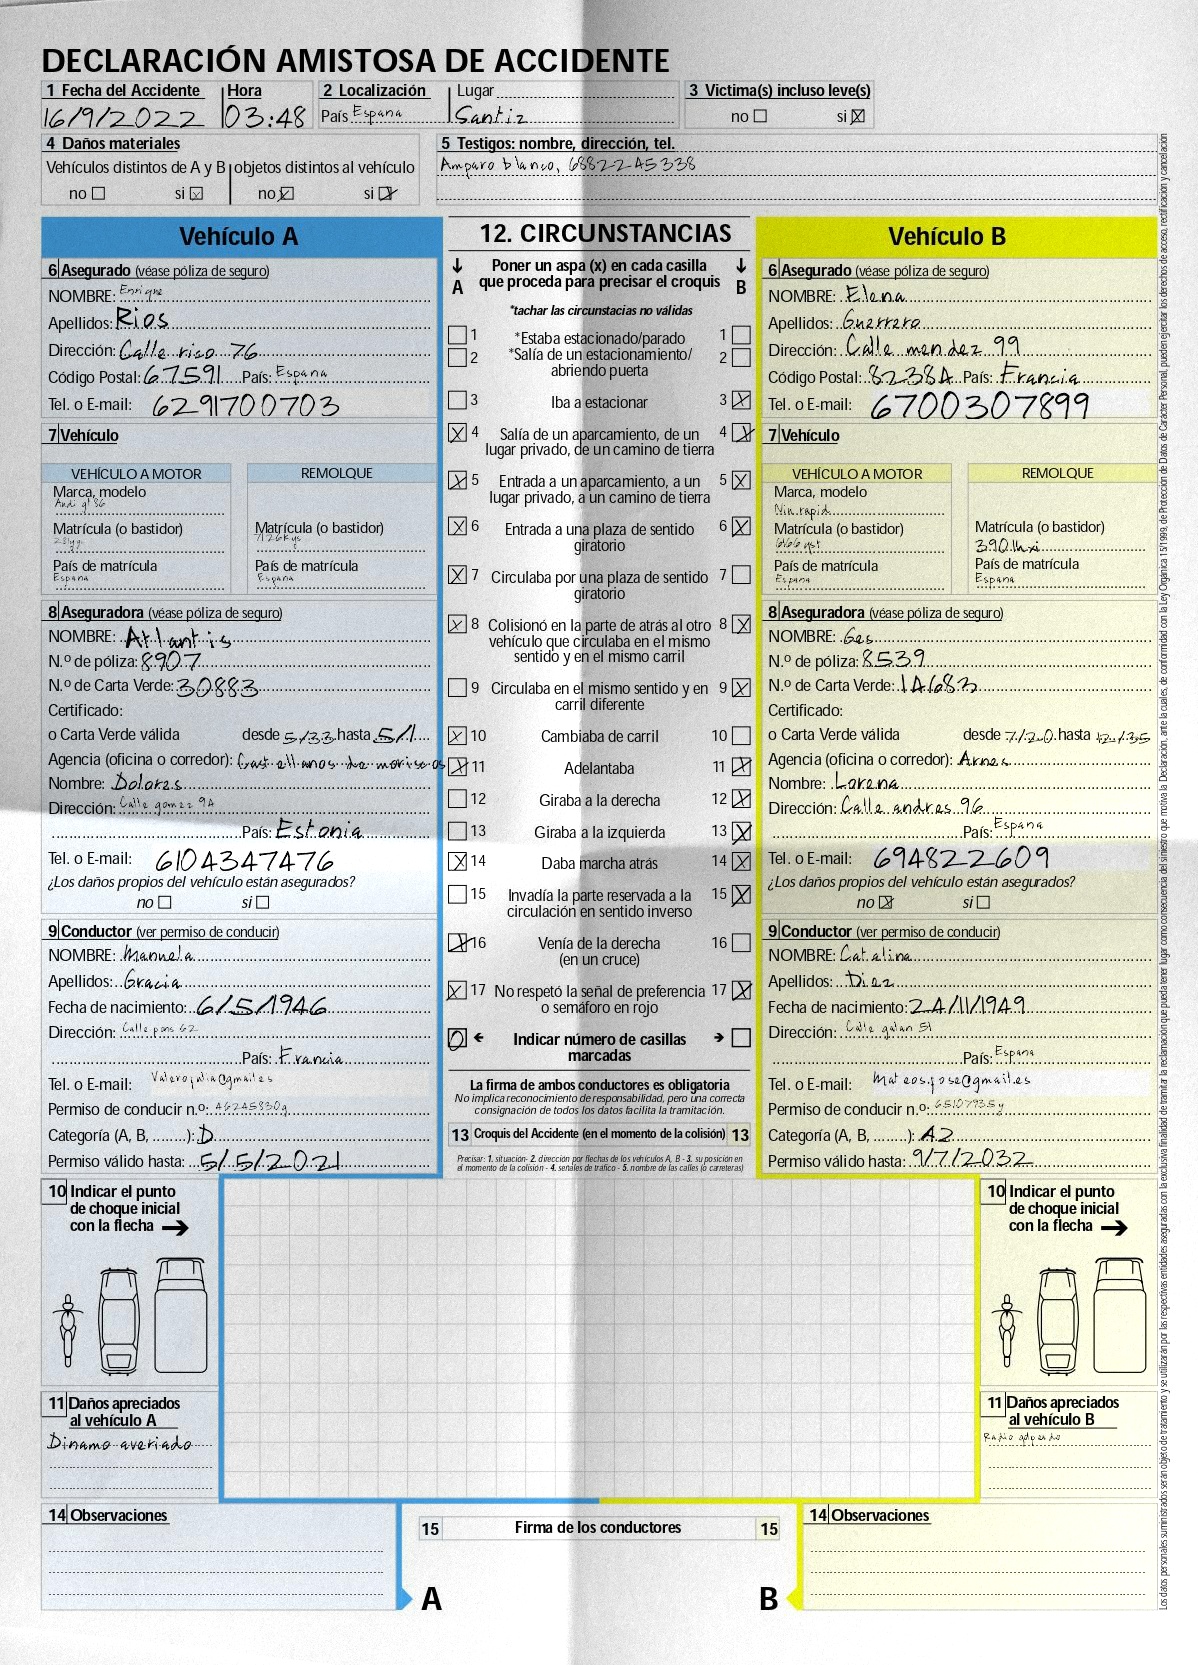 DECLARACIÓN AMISTOSA DE ACCIDENTE
1 Fecha del Accidente Hora 2 Localización Lugar 3 Victima(s) incluso leve(s)
16/9/2022 03:48 País España Santiz no si
4 Daños materiales 5 Testigos: nombre, dirección, tel.
Vehículos distintos de A y B objetos distintos al vehículo Amparo blanco, 6882245338
no si no si
Vehículo A
6 Asegurado (véase póliza de seguro)
NOMBRE: Enrique
Apellidos: Rios
Dirección: Calle rico 76
Código Postal: 67591 País: España
Tel. o E-mail: 6291700703
7 Vehículo
VEHÍCULO A MOTOR REMOLQUE
Marca, modelo
Matrícula (o bastidor) Matrícula (o bastidor)
7126kys
País de matrícula País de matrícula
España España
8 Aseguradora (véase póliza de seguro)
NOMBRE: Atlantis
N.º de póliza: 8907
N.º de Carta Verde: 30883
Certificado:
o Carta Verde válida desde 5/33 hasta 5/1
Agencia (oficina o corredor): Castellanos de moriscos
Nombre: Dolores
Dirección: Calle gomez 94
País: Estonia
Tel. o E-mail: 6104347476
¿Los daños propios del vehículo están asegurados?
no si
9 Conductor (ver permiso de conducir)
NOMBRE: Manuela
Apellidos: Gracia
Fecha de nacimiento: 6/5/1946
Dirección: Calle pons 62
País: Francia
Tel. o E-mail: Valerojulia@gmail.es
Permiso de conducir n.º: 46245830g
Categoría (A, B, ........): D
Permiso válido hasta: 5/5/2021
10 Indicar el punto
de choque inicial
con la flecha
11 Daños apreciados
al vehículo A
Dinamo averiado
14 Observaciones
12. CIRCUNSTANCIAS
A Poner un aspa (x) en cada casilla B
que proceda para precisar el croquis
*tachar las circunstacias no válidas
1 *Estaba estacionado/parado 1
2 *Salía de un estacionamiento/ 2
abriendo puerta
3 Iba a estacionar 3
4 Salía de un aparcamiento, de un 4
lugar privado, de un camino de tierra
5 Entrada a un aparcamiento, a un 5
lugar privado, a un camino de tierra
6 Entrada a una plaza de sentido 6
giratorio
7 Circulaba por una plaza de sentido 7
giratorio
8 Colisionó en la parte de atrás al otro 8
vehículo que circulaba en el mismo
sentido y en el mismo carril
9 Circulaba en el mismo sentido y en 9
carril diferente
10 Cambiaba de carril 10
11 Adelantaba 11
12 Giraba a la derecha 12
13 Giraba a la izquierda 13
14 Daba marcha atrás 14
15 Invadía la parte reservada a la 15
circulación en sentido inverso
16 Venía de la derecha 16
(en un cruce)
17 No respetó la señal de preferencia 17
o semáforo en rojo
0 Indicar número de casillas
marcadas
La firma de ambos conductores es obligatoria
No implica reconocimiento de responsabilidad, pero una correcta
consignación de todos los datos facilita la tramitación.
13 Croquis del Accidente (en el momento de la colisión) 13
Precisar: 1. situación- 2. dirección por flechas de los vehículos A, B - 3. su posición en
el momento de la colisión - 4. señales de tráfico - 5. nombre de las calles (o carreteras)
15 Firma de los conductores 15
A B
Vehículo B
6 Asegurado (véase póliza de seguro)
NOMBRE: Elena
Apellidos: Guerrero
Dirección: Calle mendez 99
Código Postal: 82384 País: Francia
Tel. o E-mail: 6700307899
7 Vehículo
VEHÍCULO A MOTOR REMOLQUE
Marca, modelo
Matrícula (o bastidor) Matrícula (o bastidor)
País de matrícula País de matrícula
España España
8 Aseguradora (véase póliza de seguro)
NOMBRE: Ges
N.º de póliza: 8539
N.º de Carta Verde: 14683
Certificado:
o Carta Verde válida desde 7/20 hasta 12/35
Agencia (oficina o corredor): Arnes
Nombre: Lorena
Dirección: Calle andres 96
País: España
Tel. o E-mail: 694822609
¿Los daños propios del vehículo están asegurados?
no si
9 Conductor (ver permiso de conducir)
NOMBRE: Catalina
Apellidos: Diez
Fecha de nacimiento: 24/11/1949
Dirección: Calle galan 51
País: España
Tel. o E-mail: Mateos.jose@gmail.es
Permiso de conducir n.º: 65107935y
Categoría (A, B, ........): A2
Permiso válido hasta: 9/7/2032
10 Indicar el punto
de choque inicial
con la flecha
11 Daños apreciados
al vehículo B
Radio golpeado
14 Observaciones
Los datos personales suministrados seran objeto de tratamiento y se utilizaran por las respectivas entidades aseguradas con la exclusiva finalidad de tramitar la reclamación que pueda tener lugar como consecuencia del siniestro que motiva la Declaración, ante la cuales, de conformidad con la Ley Organica 15/1999, de Protección de Datos de Carácter Personal, pueden ejercitar los derechos de acceso, rectificación y cancelación